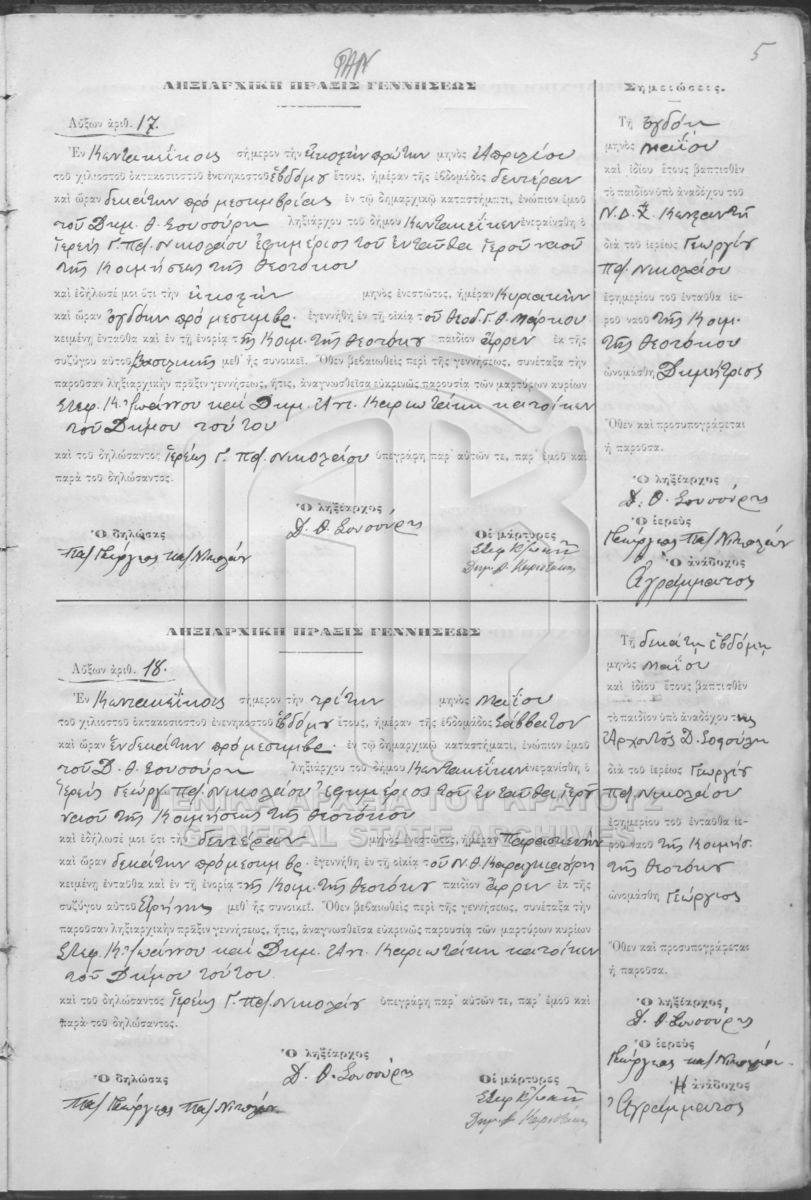 5
ΛΗΞΙΑΡΧΙΚΗ ΠΡΑΞΙΣ ΓΕΝΝΗΣΕΩΣ
Αὔξων ἀριθ. 17.
Ἐν Κοντακεΐκοις σήμερον τὴν εἰκοστὴν πρώτην μηνὸς Ἀπριλίου
τοῦ χιλιοστοῦ ὀκτακοσιοστοῦ ἐνενηκοστοῦ ἑβδόμου ἔτους, ἡμέραν τῆς ἑβδομάδος δευτέραν
καὶ ὥραν δεκάτην πρὸ μεσημβρίας ἐν τῷ δημαρχικῷ καταστήματι, ἐνώπιον ἐμοῦ
τοῦ Δημ. Θ. Σουσούρη ληξιάρχου τοῦ δήμου Κοντακεΐκων ἐνεφανίσθη ὁ
Ἱερεὺς Γ. Πα/ Νικολάου ἐφημέριος τοῦ ἐνταῦθα Ἱεροῦ ναοῦ
τῆς Κοιμήσεως τῆς Θεοτόκου
καὶ ἐδήλωσέ μοι ὅτι τὴν εἰκοστὴν μηνὸς ἐνεστῶτος, ἡμέραν Κυριακὴν
καὶ ὥραν ὀγδόην πρὸ μεσημβρ. ἐγεννήθη ἐν τῇ οἰκίᾳ τοῦ Θεοδ. Γ. Θ. Μάρκου
κειμένῃ ἐνταῦθα καὶ ἐν τῇ ἐνορίᾳ τῆς Κοιμ. τῆς Θεοτόκου παιδίον ἄρρεν ἐκ τῆς
συζύγου αὐτοῦ Βασιλικῆς μεθ' ἧς συνοικεῖ. Ὅθεν βεβαιωθεὶς περὶ τῆς γεννήσεως, συνέταξα τὴν
παροῦσαν ληξιαρχικὴν πρᾶξιν γεννήσεως, ἥτις, ἀναγνωσθεῖσα εὐκρινῶς παρουσίᾳ τῶν μαρτύρων κυρίων
Στεφ. Κ. Ἰωάννου καὶ Δημ. Ἀντ. Καριωτάκη κατοίκων
τοῦ Δήμου τούτου
καὶ τοῦ δηλώσαντος Ἱερέως Γ. Πα/ Νικολάου ὑπεγράφη παρ' αὐτῶν τε, παρ' ἐμοῦ καὶ
παρὰ τοῦ δηλώσαντος.
Ὁ ληξίαρχος
Δ. Θ. Σουσούρης
Ὁ δηλώσας
Πα/ Γεώργιος Πα/ Νικολάου
Οἱ μάρτυρες
Δημ. Α. Καριωτάκης
Σημειώσεις.
Τῇ ὀγδόῃ
μηνὸς Μαΐου
καὶ ἰδίου ἔτους βαπτισθὲν
τὸ παιδίον ὑπὸ ἀναδόχου τοῦ
διὰ τοῦ ἱερέως Γεωργίου
Πα/ Νικολάου
ἐφημερίου τοῦ ἐνταῦθα ἱε-
ροῦ ναοῦ τῆς Κοιμ.
τῆς Θεοτόκου
ὠνομάσθη Δημήτριος
Ὅθεν καὶ προσυπογράφεται
ἡ παροῦσα.
Ὁ ληξίαρχος
Δ. Θ. Σουσούρης
Ὁ ἱερεὺς
Γεώργιος Πα/ Νικολάου
Ὁ ἀνάδοχος
Ἀγράμματος
ΛΗΞΙΑΡΧΙΚΗ ΠΡΑΞΙΣ ΓΕΝΝΗΣΕΩΣ
Αὔξων ἀριθ. 18.
Ἐν Κοντακεΐκοις σήμερον τὴν τρίτην μηνὸς Μαΐου
τοῦ χιλιοστοῦ ὀκτακοσιοστοῦ ἐνενηκοστοῦ ἑβδόμου ἔτους, ἡμέραν τῆς ἑβδομάδος Σάββατον
καὶ ὥραν ἑνδεκάτην πρὸ μεσημβρ. ἐν τῷ δημαρχικῷ καταστήματι, ἐνώπιον ἐμοῦ
τοῦ Δ. Θ. Σουσούρη ληξιάρχου τοῦ δήμου Κοντακεΐκων ἐνεφανίσθη ὁ
Ἱερεὺς Γεώργ. Πα/ Νικολάου ἐφημέριος τοῦ ἐνταῦθα Ἱεροῦ
ναοῦ τῆς Κοιμήσεως τῆς Θεοτόκου
καὶ ἐδήλωσέ μοι ὅτι τὴν δευτέραν μηνὸς ἐνεστῶτος, ἡμέραν Παρασκευὴν
καὶ ὥραν δεκάτην πρὸ μεσημβρ. ἐγεννήθη ἐν τῇ οἰκίᾳ τοῦ Ν. Θ.
κειμένῃ ἐνταῦθα καὶ ἐν τῇ ἐνορίᾳ τῆς Κοιμ. τῆς Θεοτόκου παιδίον ἄρρεν ἐκ τῆς
συζύγου αὐτοῦ Εἰρήνης μεθ' ἧς συνοικεῖ. Ὅθεν βεβαιωθεὶς περὶ τῆς γεννήσεως, συνέταξα τὴν
παροῦσαν ληξιαρχικὴν πρᾶξιν γεννήσεως, ἥτις, ἀναγνωσθεῖσα εὐκρινῶς παρουσίᾳ τῶν μαρτύρων κυρίων
Στεφ. Κ. Ἰωάννου καὶ Δημ. Ἀντ. Καριωτάκη κατοίκων
τοῦ Δήμου τούτου.
καὶ τοῦ δηλώσαντος Ἱερέως Γ. Πα/ Νικολάου ὑπεγράφη παρ' αὐτῶν τε, παρ' ἐμοῦ καὶ
παρὰ τοῦ δηλώσαντος.
Ὁ ληξίαρχος
Δ. Θ. Σουσούρης
Ὁ δηλώσας
Πα/ Γεώργιος Πα/ Νικολάου
Οἱ μάρτυρες
Δημ. Α. Καριωτάκης
Τῇ δεκάτῃ ἑβδόμῃ
μηνὸς Μαΐου
καὶ ἰδίου ἔτους βαπτισθὲν
τὸ παιδίον ὑπὸ ἀναδόχου της
Δ. Σοφούλη
διὰ τοῦ ἱερέως Γεωργίου
Πα/ Νικολάου
ἐφημερίου τοῦ ἐνταῦθα ἱε-
ροῦ ναοῦ τῆς Κοιμήσ.
τῆς Θεοτόκου
ὠνομάσθη Γεώργιος
Ὅθεν καὶ προσυπογράφεται
ἡ παροῦσα.
Ὁ ληξίαρχος
Δ. Θ. Σουσούρης
Ὁ ἱερεὺς
Γεώργιος Πα/ Νικολάου
Ἡ ἀνάδοχος
Ἀγράμματος
ΓΕΝΙΚΑ ΑΡΧΕΙΑ ΤΟΥ ΚΡΑΤΟΥΣ
GENERAL STATE ARCHIVES